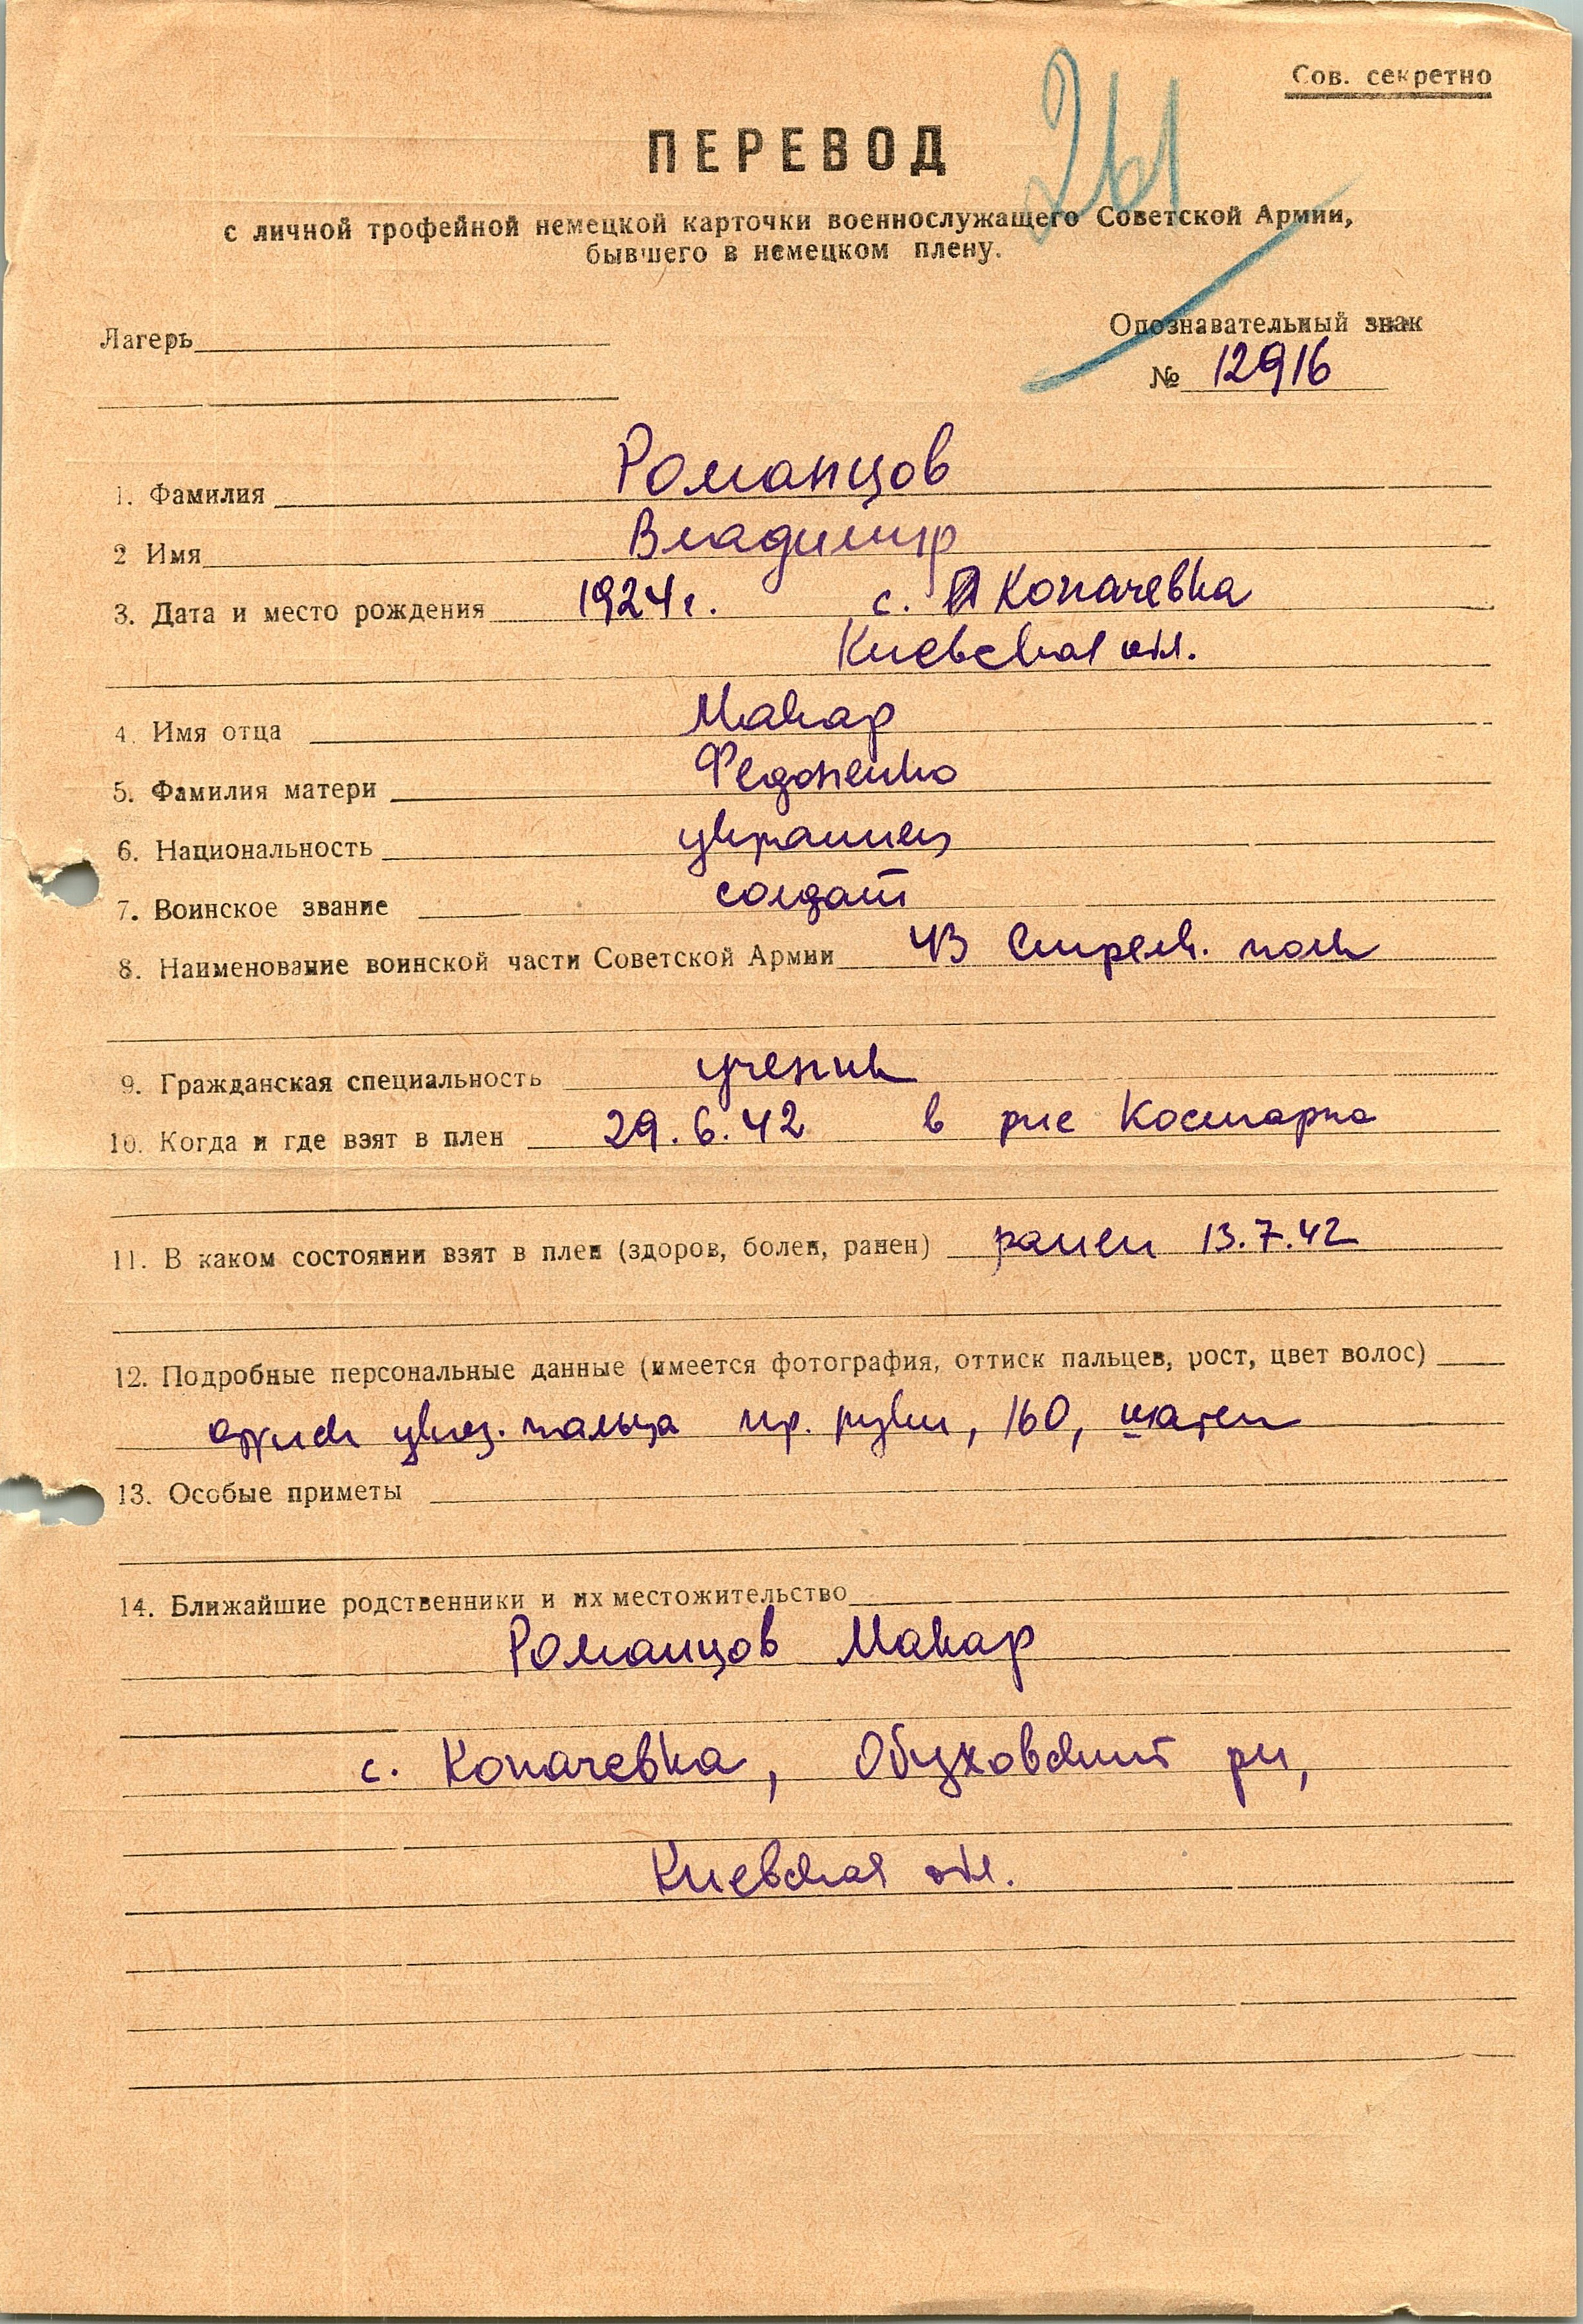 Сов. секретно
261
ПЕРЕВОД
с личной трофейной немецкой карточки военнослужащего Советской Армии,
бывшего в немецком плену.
Лагерь
Опознавательный знак
№ 12916
1. Фамилия Романцов
2 Имя Владимир
3. Дата и место рождения 1924 г. с. Копачевка
Киевская обл.
4. Имя отца Макар
5. Фамилия матери Федоненко
6. Национальность украинец
7. Воинское звание солдат
8. Наименование воинской части Советской Армии 43 Стрелк. полк
9. Гражданская специальность ученик
10. Когда и где взят в плен 29.6.42 в
11. В каком состоянии взят в плен (здоров, болен, ранен) ранен 13.7.42
12. Подробные персональные данные (имеется фотография, оттиск пальцев, рост, цвет волос)
указ. пальца пр. руки, 160, шатен
13. Особые приметы
14. Ближайшие родственники и их местожительство
Романцов Макар
с. Копачевка, Обуховский рн,
Киевская обл.